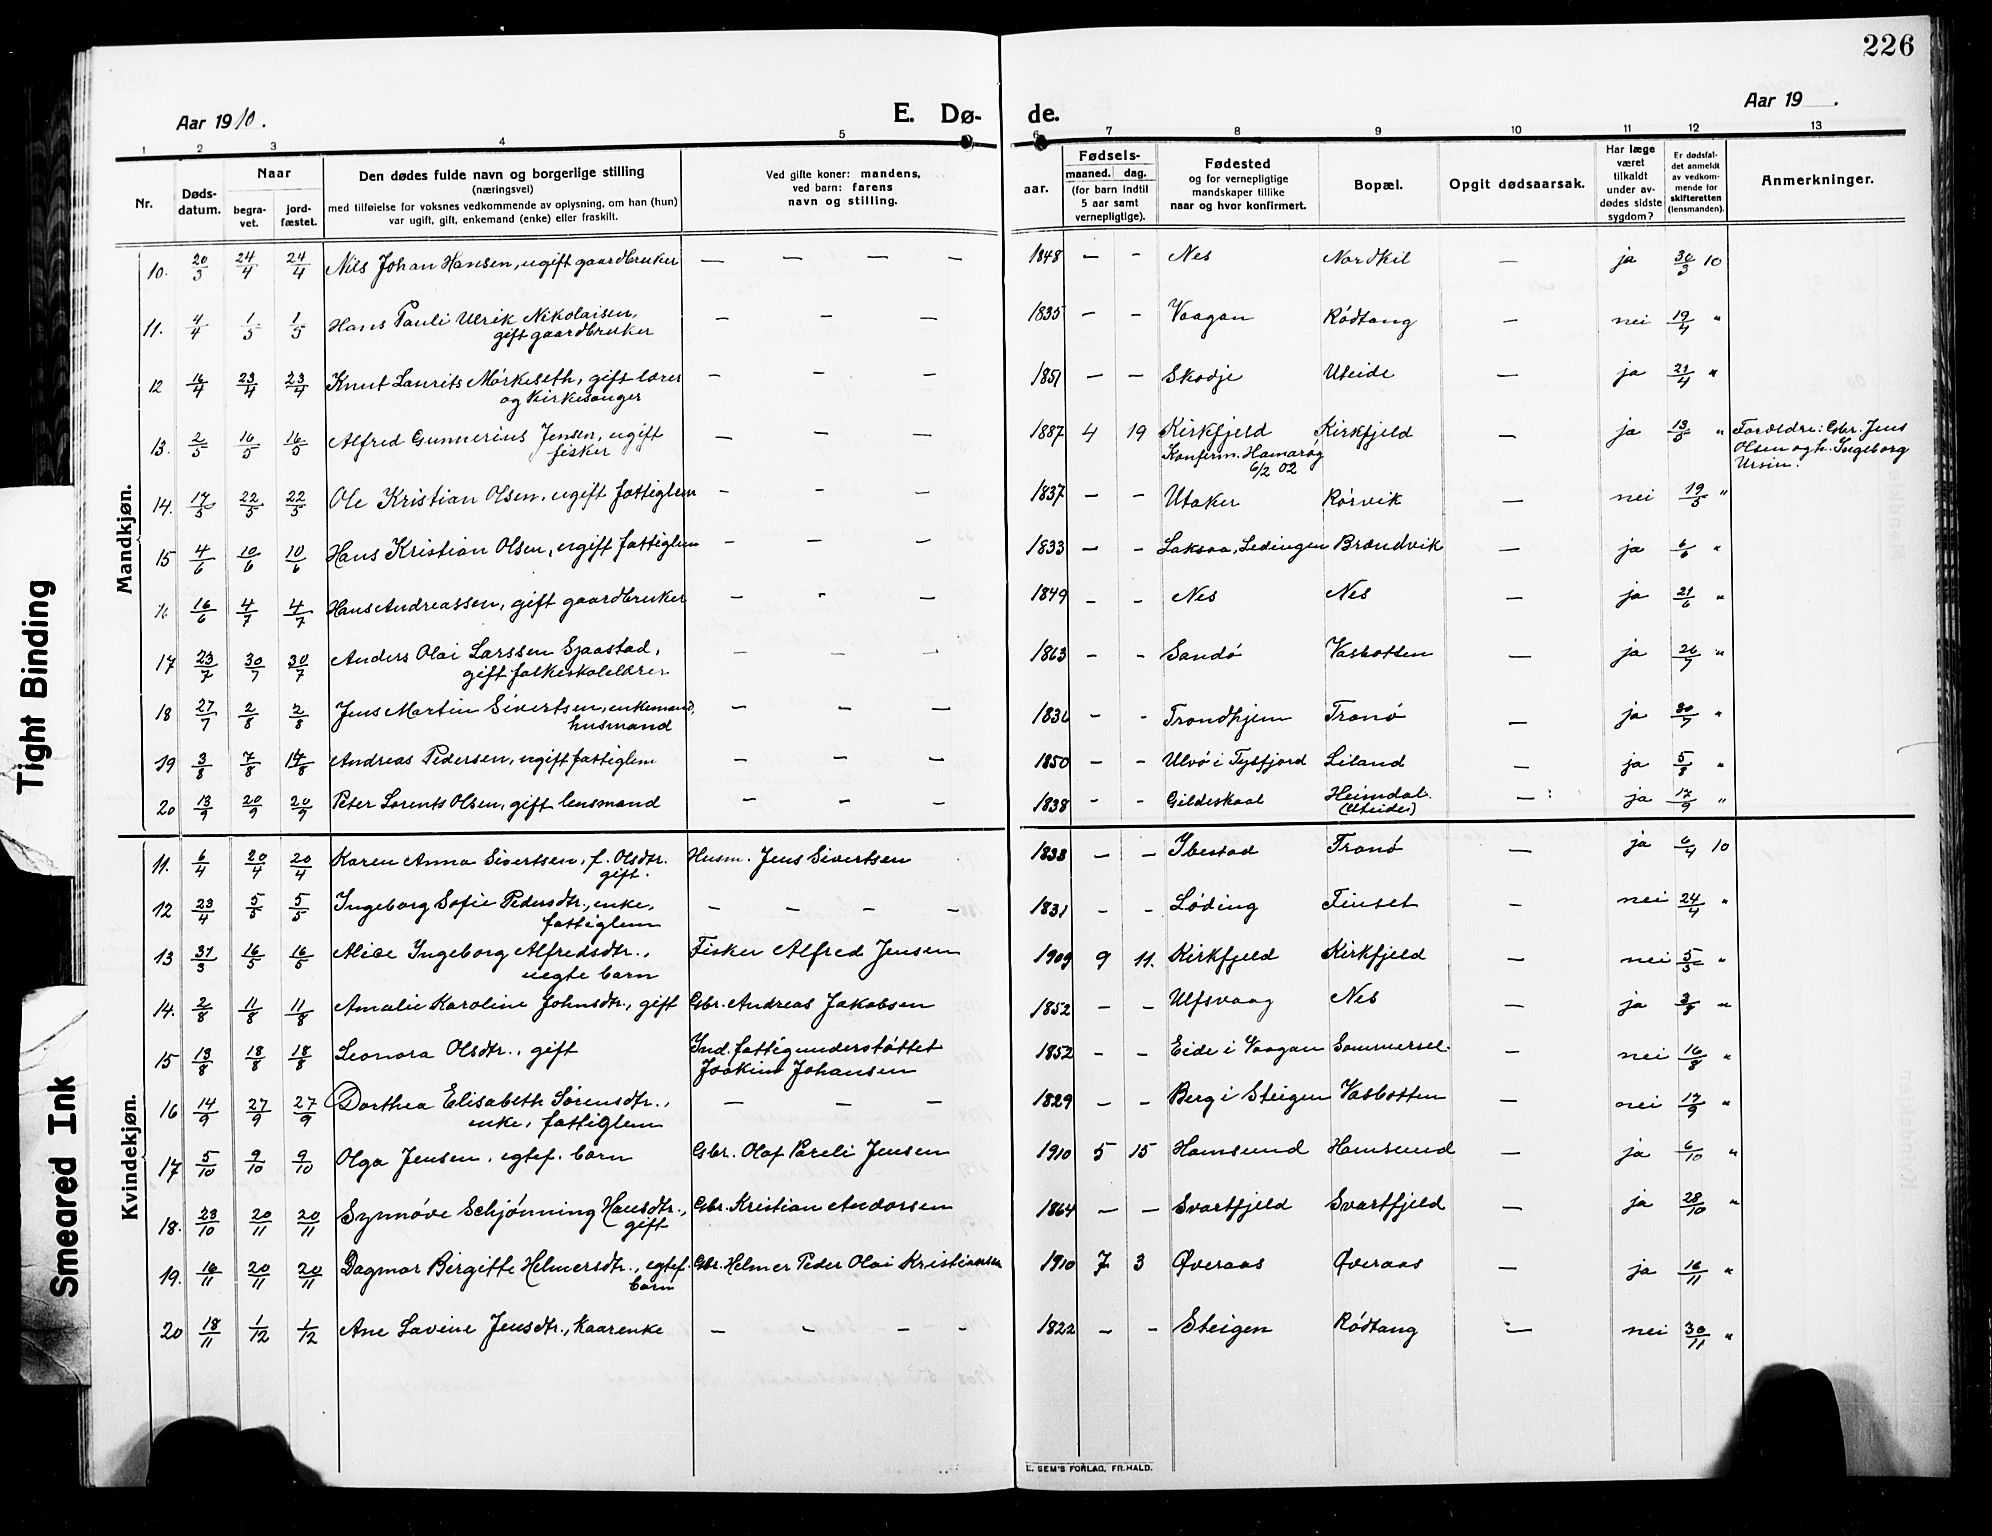 226
Aar 1910.
E. Dø-
de.
Aar 19 .
1 2 3 4 5 6 7 8 9 10 11 12 13
Nr.
Døds-
datum.
Naar
begra-
vet.
jord-
fæstet.
Den dødes fulde navn og borgerlige stilling
(næringsvei)
med tilføielse for voksnes vedkommende av oplysning, om han (hun)
var ugift, gift, enkemand (enke) eller fraskilt.
Ved gifte koner: mandens,
ved barn: farens
navn og stilling.
aar.
Fødsels-
maaned. dag.
(for barn indtil
5 aar samt
vernepligtige).
Fødested
og for vernepligtige
mandskaper tillike
naar og hvor konfirmert.
Bopæl.
Opgit dødsaarsak.
Har læge
været
tilkaldt
under av-
dødes sidste
sygdom?
Er dødsfal-
det anmeldt
av vedkom-
mende for
skifteretten
(lensmanden).
Anmerkninger.
Mandkjøn.
10. 20/3 24/4 24/4 Nils Johan Hansen, ugift gaardbruker — — — — 1848 — - Nes Nordkil — ja 30/3 10
11. 4/4 1/5 1/5 Hans Pauli Ulrik Nikolaisen, — — — 1835 — — Vaagan Rødtang — nei 19/4 "
gift gaardbruker
12 16/4 23/4 23/4 Knut Laurits Mørkeseth, gift lærer — — — 1851 — — Skodje Uteide — ja 21/4 "
og kirkesanger
13. 2/5 16/5 16/5 Alfred Gunnerius Jensen, ugift — — — 1887 4 19 Kirkfjeld Kirkfjeld — ja 13/5 " Forældre: Gbr. Jens
fisker Konferm. Hamarøg Olsen og h. Ingeborg
6/2 02 Ursin.
14. 17/5 22/5 22/5 Ole Kristian Olsen, ugift fattiglem — — — 1837 — — Utaker Rørvik — nei 19/5 "
15 4/6 10/6 10/6 Hans Kristian Olsen, ugift fattiglem — — — 1833 — — Laksaa, Lødingen Brændvik — ja 6/6 "
16 16/6 4/7 4/7 Hans Andreassen, gift gaardbruker — - — 1849 - - Nes Nes — ja 21/6 "
17 23/7 30/7 30/7 Anders Olai Larssen Sjaastad, — — — 1863 - - Sandø Vasbotten — ja 26/7 "
gift folkeskolelærer
18 27/7 2/8 2/8 Jens Martin Sivertsen, enkemand, — — — 1836 - - Trondhjem Tranø — ja 30/7 "
husmand
19 3/8 7/8 14/8 Andreas Pedersen, ugift fattiglem — — — 1850 — - Ulvø i Tysfjord Leland — ja 5/8 "
20 13/9 20/9 20/9 Peter Lorents Olsen, gift lensmand — — — 1838 - - Gildeskaal Heimdal. — ja 17/9 "
(Uteide)
Kvindekjøn.
11. 6/4 20/4 20/4 Karen Anna Sivertsen, f. Olsdtr. Husm. Jens Sivertsen 1838 — — Ibestad Tranø — ja 6/4 10
gift.
12 23/4 5/5 5/5 Ingeborg Sofie Pedersdtr., enke, — — — — 1831 - - Løding Finset — nei 24/4 "
fattiglem
13 31/3 16/5 16/5 Alice Ingeborg Alfredsdtr., Fisker Alfred Jensen 1909 9 11. Kirkfjeld Kirkfjeld — nei 5/5 "
uegte barn
14. 2/8 11/8 11/8 Amalie Karoline Johnsdtr., gift Gbr. Andreas Jakobsen 1852 - - Ulfsvaag Nes — ja 3/8 "
15 13/8 18/8 18/8 Leonora Olsdtr., gift Ind. fattigunderstøttet 1852 - - Eide i Vaagan Sommersel. — nei 16/8 "
Joakim Johansen
16 14/9 27/9 27/9 Dorthea Elisabeth Sørensdtr., — — — 1829 — - Berg i Steigen Vasbotten — nei 17/9 "
enke, fattiglem
17 5/10 9/10 9/10 Olga Jensen, egtef. barn Gbr. Olaf Pareli Jensen 1910 5 15 Hamsund Hamsund — ja 6/10 "
18. 23/10 20/11 20/11 Synnøve Schjønning Hansdtr., Gbr. Kristian Andorsen 1864 — — Svartfjeld Svartfjeld — ja 28/10 "
gift
19. 16/11 20/11 20/11 Dagmar Birgitte Helmersdtr., egtef. Gbr. Helmer Peder Olai Kristiansen 1910 7 3 Øveraas Øveraas — ja 16/11 "
barn
20 18/11 1/12 1/12 Ane Lavine Jensdtr., kaarenke — - — - 1822 — - Steigen Rødtang — nei 30/11 "
E. SEM'S FORLAG, FR.HALD.
Tight Binding
Smeared Ink